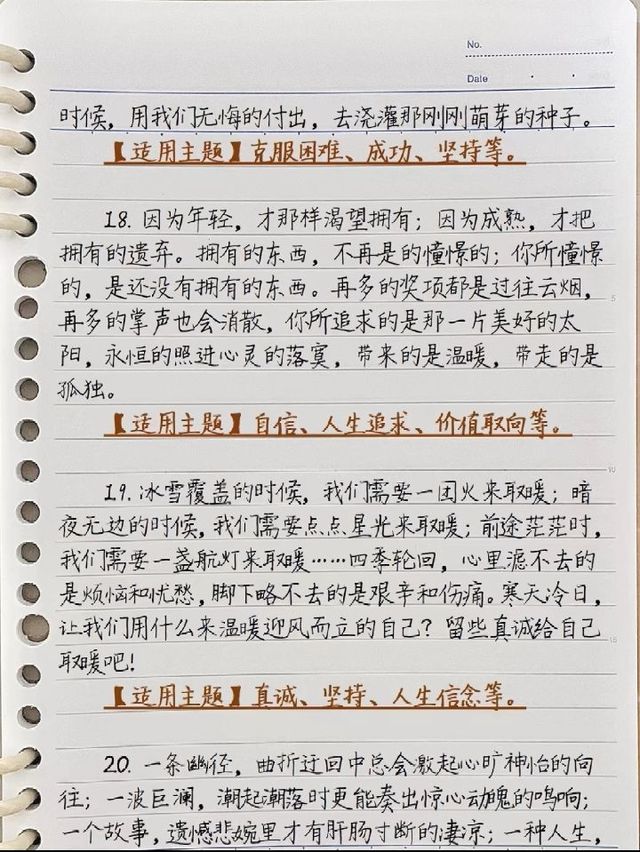 No.
Date
时候，用我们无悔的付出，去浇灌那刚刚萌芽的种子。
【适用主题】克服困难、成功、坚持等。
18. 因为年轻，才那样渴望拥有；因为成熟，才把
拥有的遗弃。拥有的东西，不再是的憧憬的；你所憧憬
的，是还没有拥有的东西。再多的奖项都是过往云烟，
再多的掌声也会消散，你所追求的是那一片美好的太
阳，永恒的照进心灵的落寞，带来的是温暖，带走的是
孤独。
【适用主题】自信、人生追求、价值取向等。
19. 冰雪覆盖的时候，我们需要一团火来取暖；暗
夜无边的时候，我们需要点点星光来取暖；前途茫茫时，
我们需要一盏航灯来取暖……四季轮回，心里滤不去的
是烦恼和忧愁，脚下略不去的是艰辛和伤痛。寒天冷日，
让我们用什么来温暖迎风而立的自己？留些真诚给自己
取暖吧！
【适用主题】真诚、坚持、人生信念等。
20. 一条幽径，曲折迂回中总会激起心旷神怡的向
往；一波巨澜，潮起潮落时更能奏出惊心动魄的鸣响；
一个故事，遗憾悲婉里才有肝肠寸断的凄凉；一种人生，
5
10
15